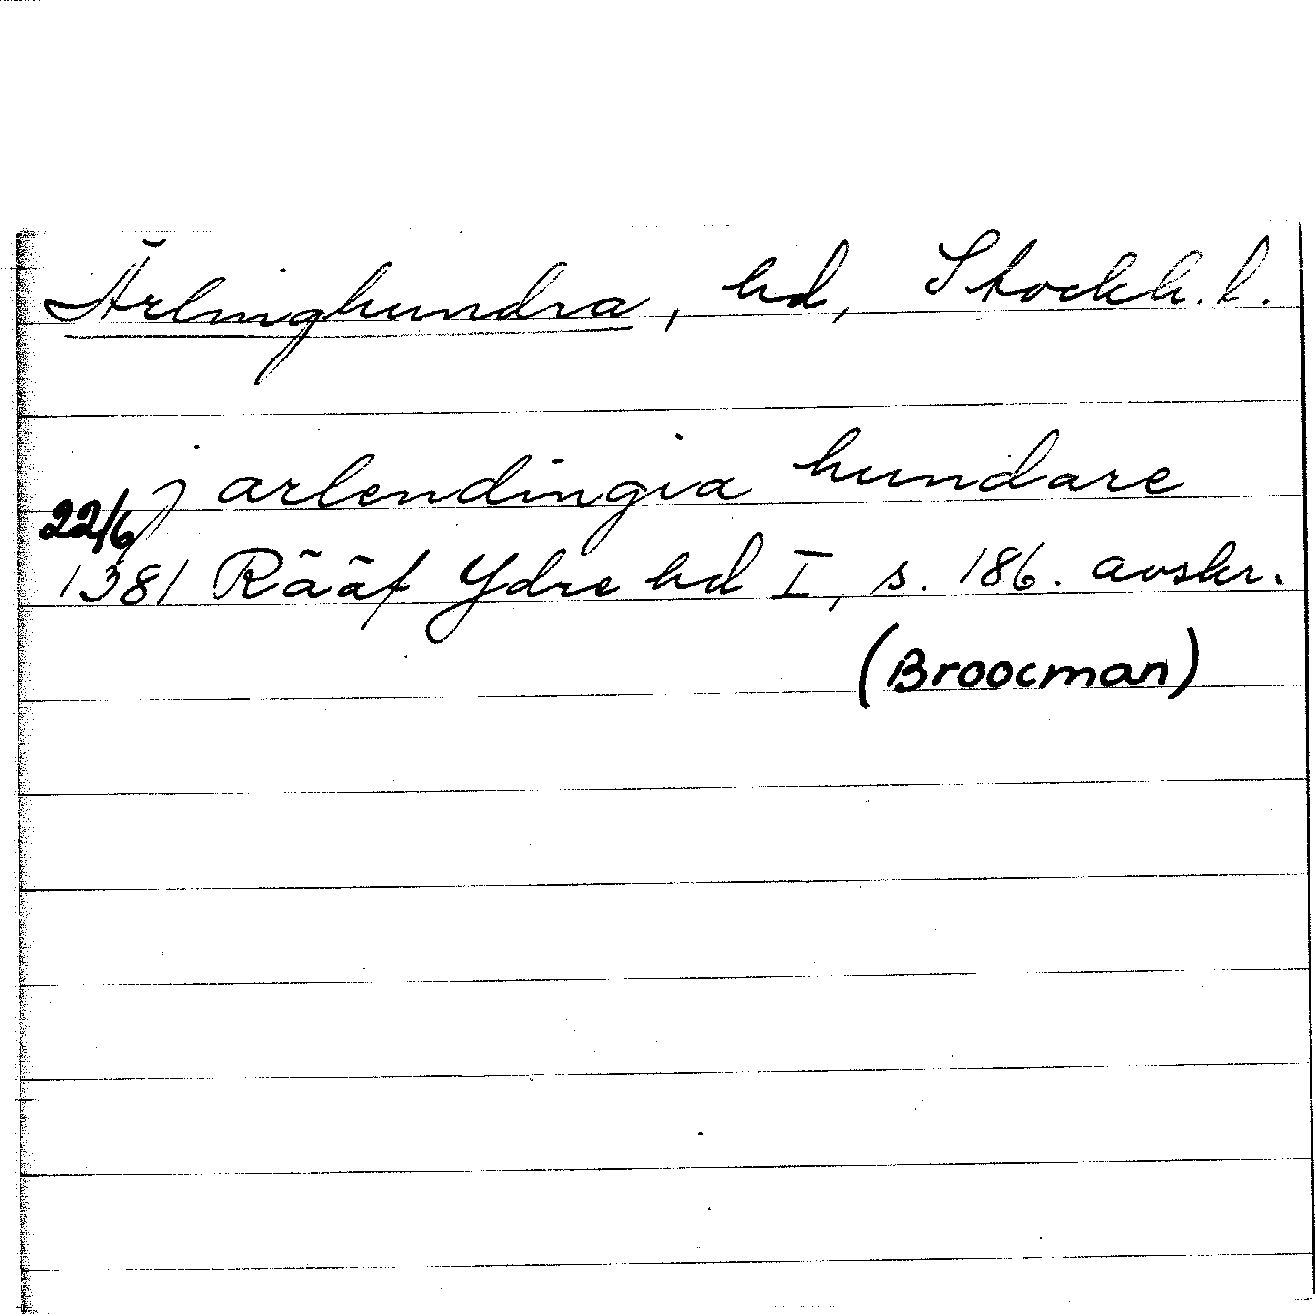 Ärlinghundra, hd, Stockh. l.
j arlendingia hundare
22/6
1381 Rääf Ydre hd I, s. 186. avskr.
(Broocman)